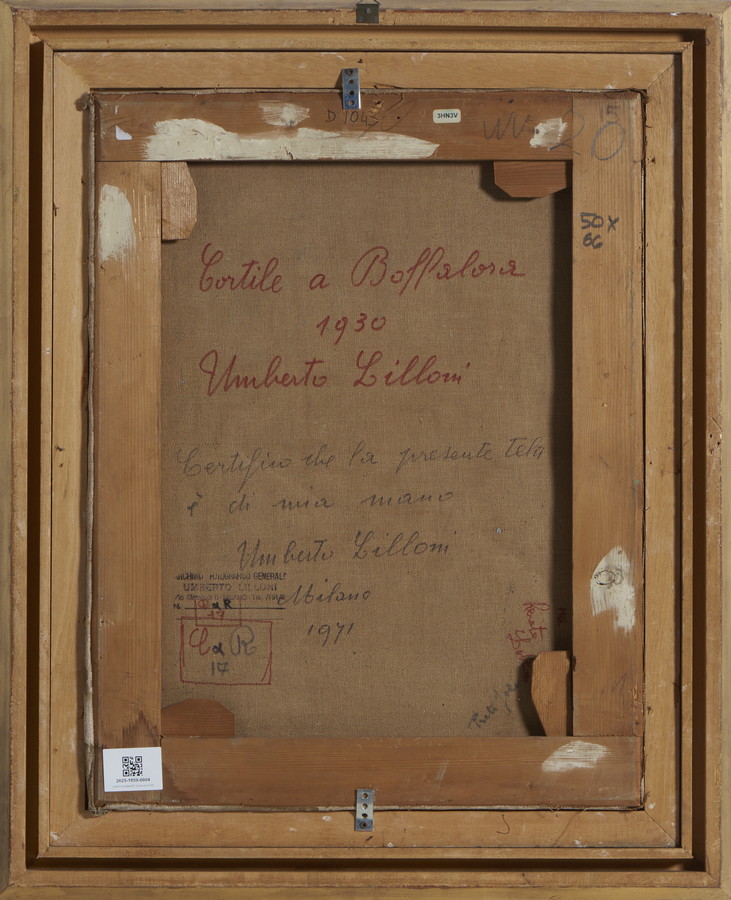 D 1043
3HN3V
20
50 x
66
Cortile a Boffalora
1930
Umberto Lilloni
Certifico che la presente tela
è di mia mano
Umberto Lilloni
Milano
1971
ARCHIVIO FOTOGRAFICO GENERALE
UMBERTO LILLONI
17
C a R
17
2025-1859-0004